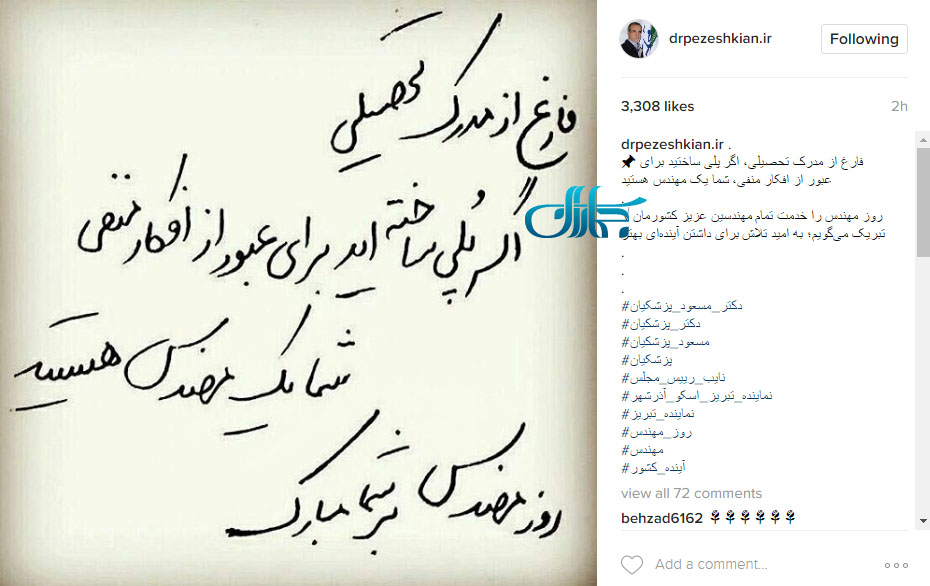 فارغ از مدرک تحصیلی
اگر پلی ساخته اید برای عبور از افکار منفی
شما یک مهندس هستید
روز مهندس بر شما مبارک
جماران
drpezeshkian.ir
Following
3,308 likes
2h
drpezeshkian.ir .
📌 فارغ از مدرک تحصیلی، اگر پلی ساختید برای
عبور از افکار منفی، شما یک مهندس هستید
.
روز مهندس را خدمت تمام مهندسین عزیز کشورمان
تبریک می‌گویم؛ به امید تلاش برای داشتن آینده‌ای بهتر
.
.
.
#دکتر_مسعود_پزشکیان
#دکتر_پزشکیان
#مسعود_پزشکیان
#پزشکیان
#نایب_رییس_مجلس
#نماینده_تبریز_اسکو_آذرشهر
#نماینده_تبریز
#روز_مهندس
#مهندس
#آینده_کشور
view all 72 comments
behzad6162
Add a comment...